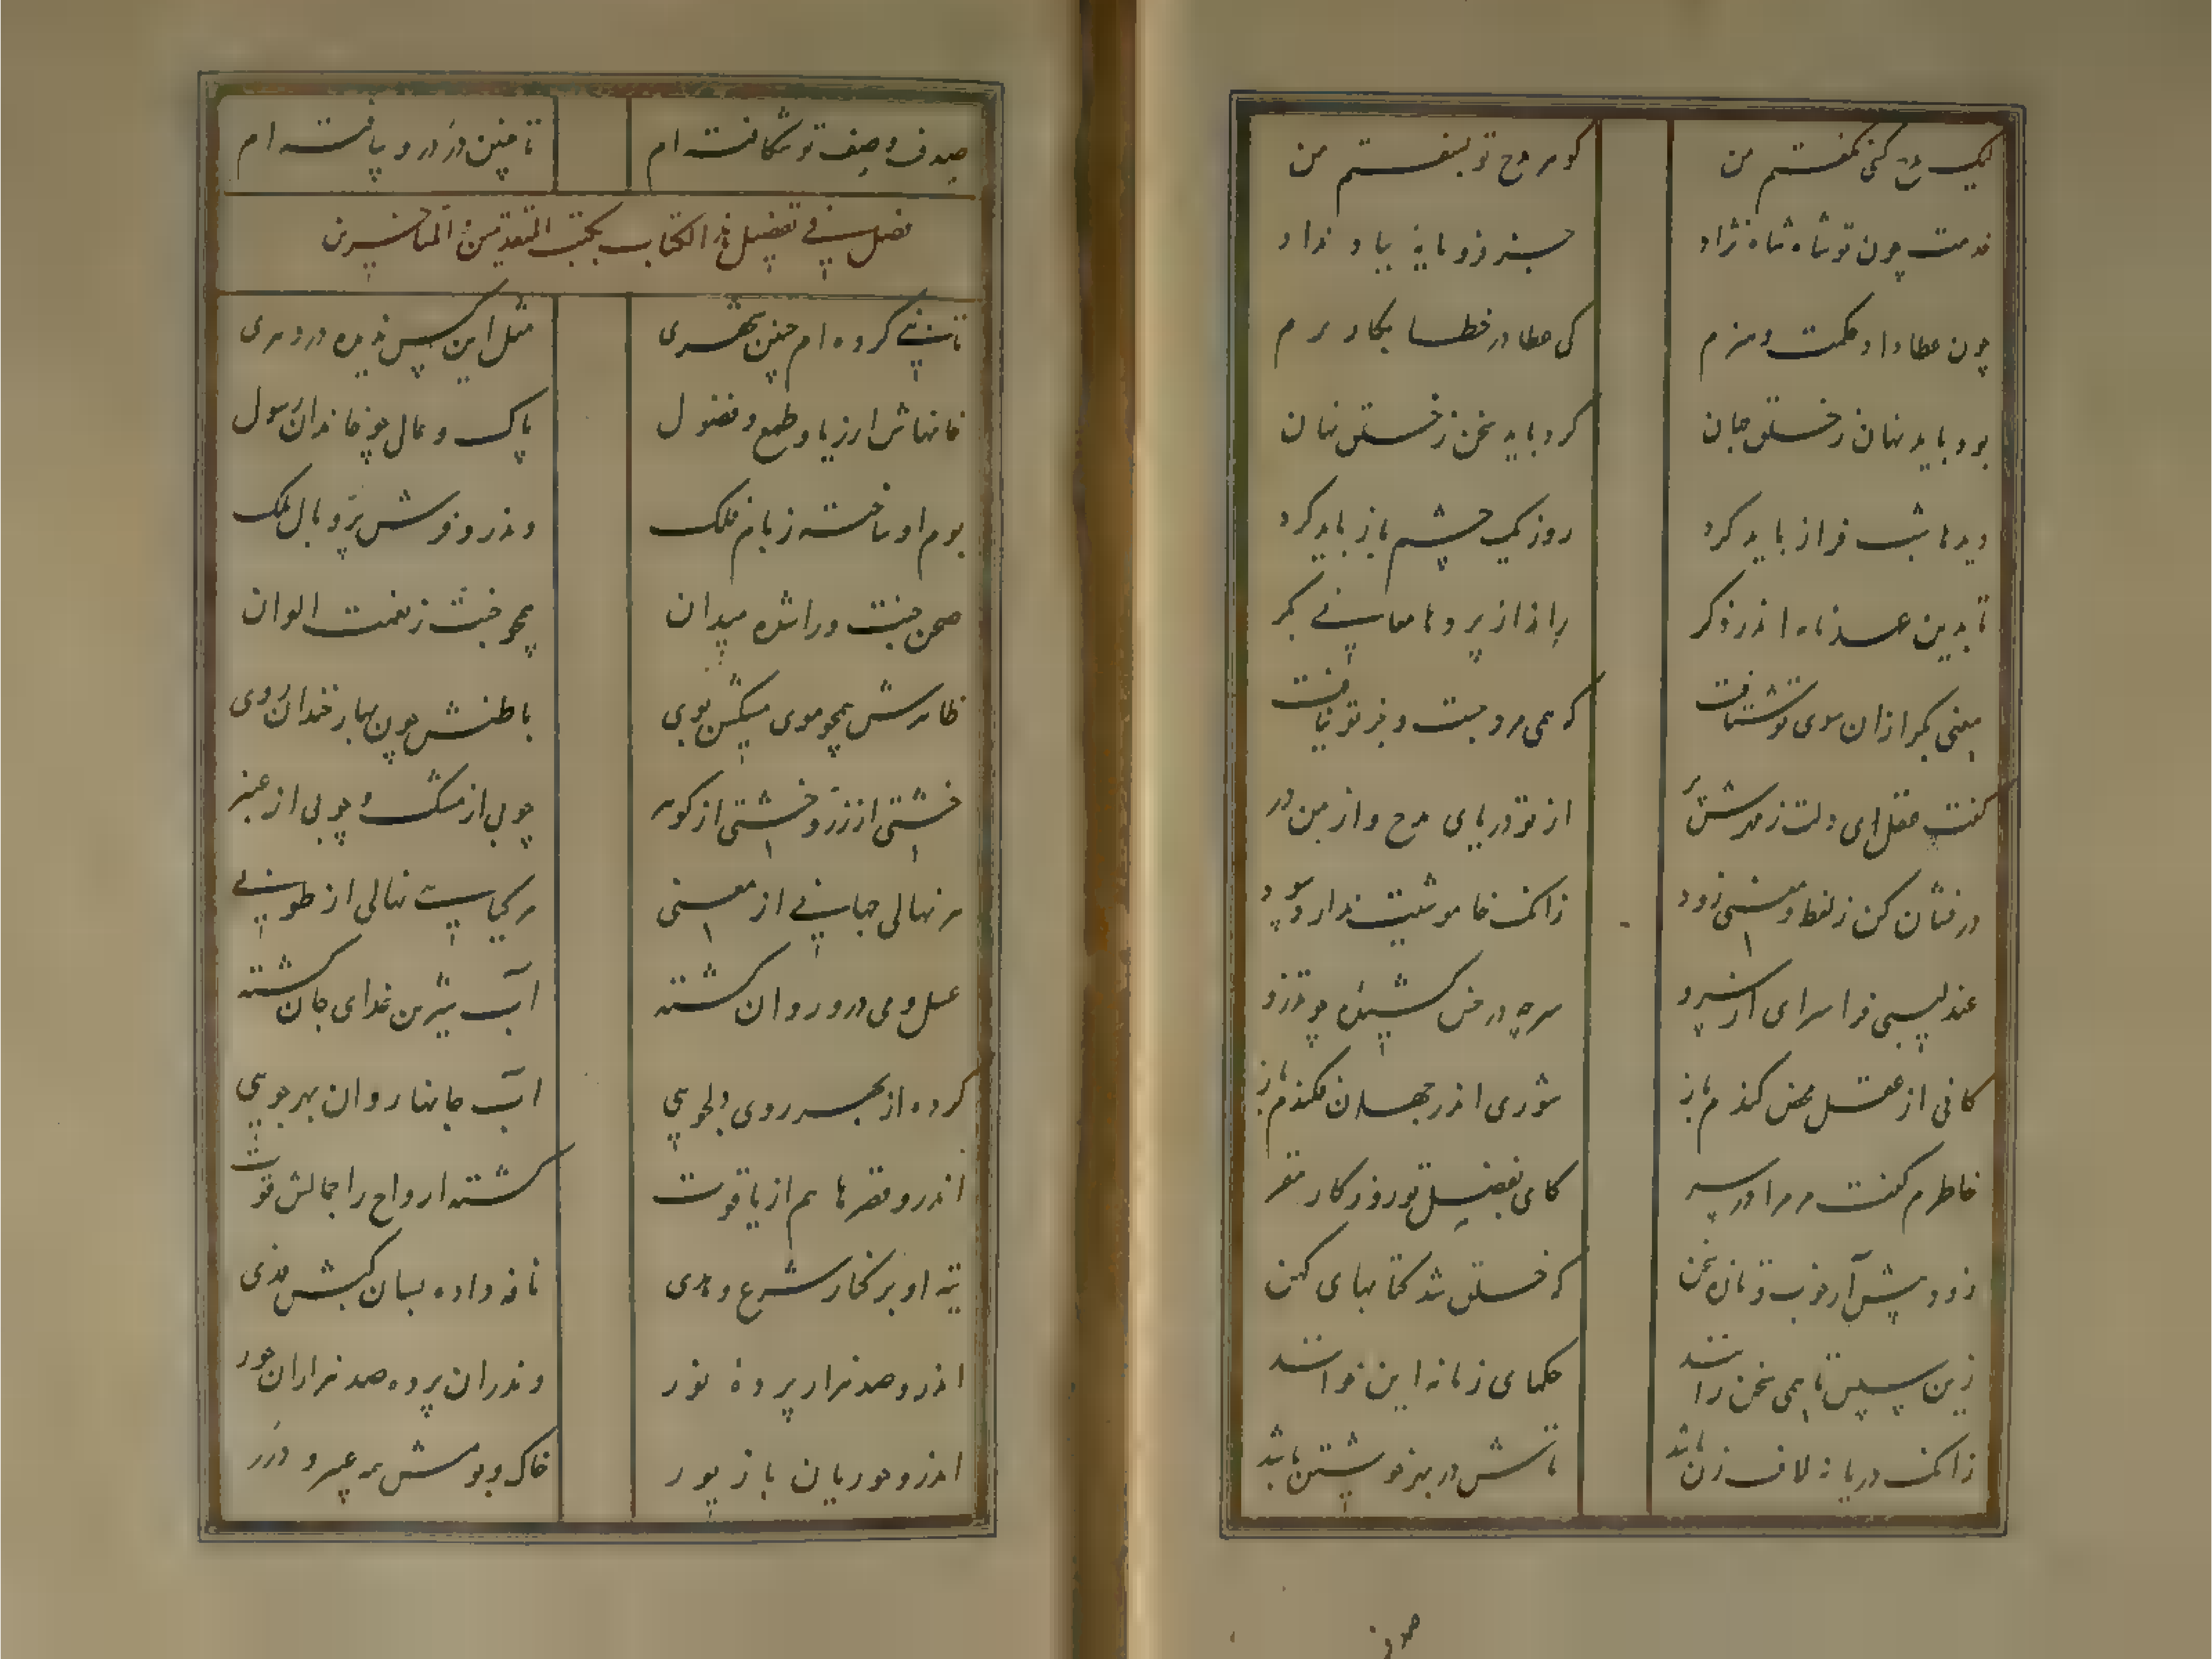 لیک مدح کسی نگفتم من گوهر مدح تو بسفتم من
خدمت چون تو شاه شاه نژاد جز فرومایهٔ بباد نداد
چون عطا داد حکمت و هنرم کی عطا در خطا بکار برم
بود باید نهان ز خلق جهان کرد باید سخن ز خلق نهان
دیدها شب فراز باید کرد روز یک چشم باز باید کرد
تا بدین عذرنامه اندر ذکر راند از پردها معانی بکر
معنی بکر از آن سوی تو شتافت که همی مرد جست و جز تو نیافت
گفت عقل ای دلت ز مهرش پر از تو دریای مدح و از من در
در فشان کن ز لفظ و معنی زود زانک خاموشیت ندارد سود
عندلیبی فرا سرای از سرو سر چه در خس کشیدهٔ چو تذرو
کانی از عقل محض کندم باز شوری اندر جهان فکندم باز
خاطرم گفت مر مرا در سر کای بفضل تو روزگار مقر
زود پیش آر خوب و تازه سخن که خلق شد کتابهای کهن
زین سپس تا همی سخن رانند حکمای زمانه این خوانند
زانک دریا نه لاف زن باشد تابش در بهر خویشتن باشد
صدف
صدف وصف تو شکافته‌ام تا چنین در درو بیافته‌ام
فصل فی تفضیل هذا الکتاب بکتب المتقدمین و المتاخرین
تا بنی کرده‌ام چنین شهری مثل این کس ندیده در دهری
خانهاش ار زیاد طمع و فضول پاک و عالی چو خاندان رسول
بوم او ساخته ز بام فلک وندرو فرش پر و بال ملک
صحن جنت ورا شده میدان همچو جنت ز نعمت الوان
ظاهرش همچو موی مشکین بوی باطنش چون بهار خندان روی
خشتی از زر و خشتی از گوهر چوبی از مشک و چوبی از عنبر
هر نهالی جهانی از معنی هر گیاهیست نهالی از طوبی
عسل و می درو روان گشته آب شیرین غذای جان گشته
کرده از بحر روی دلجویی آب جانها روان بهر جویی
اندرو قصرها هم از یاقوت گشته ارواح را جمالش قوت
اندرو صد هزار پردهٔ نور وندران پرده صد هزاران حور
اندرو حوریان با زیور خاک و بومش همه عبیر و درر